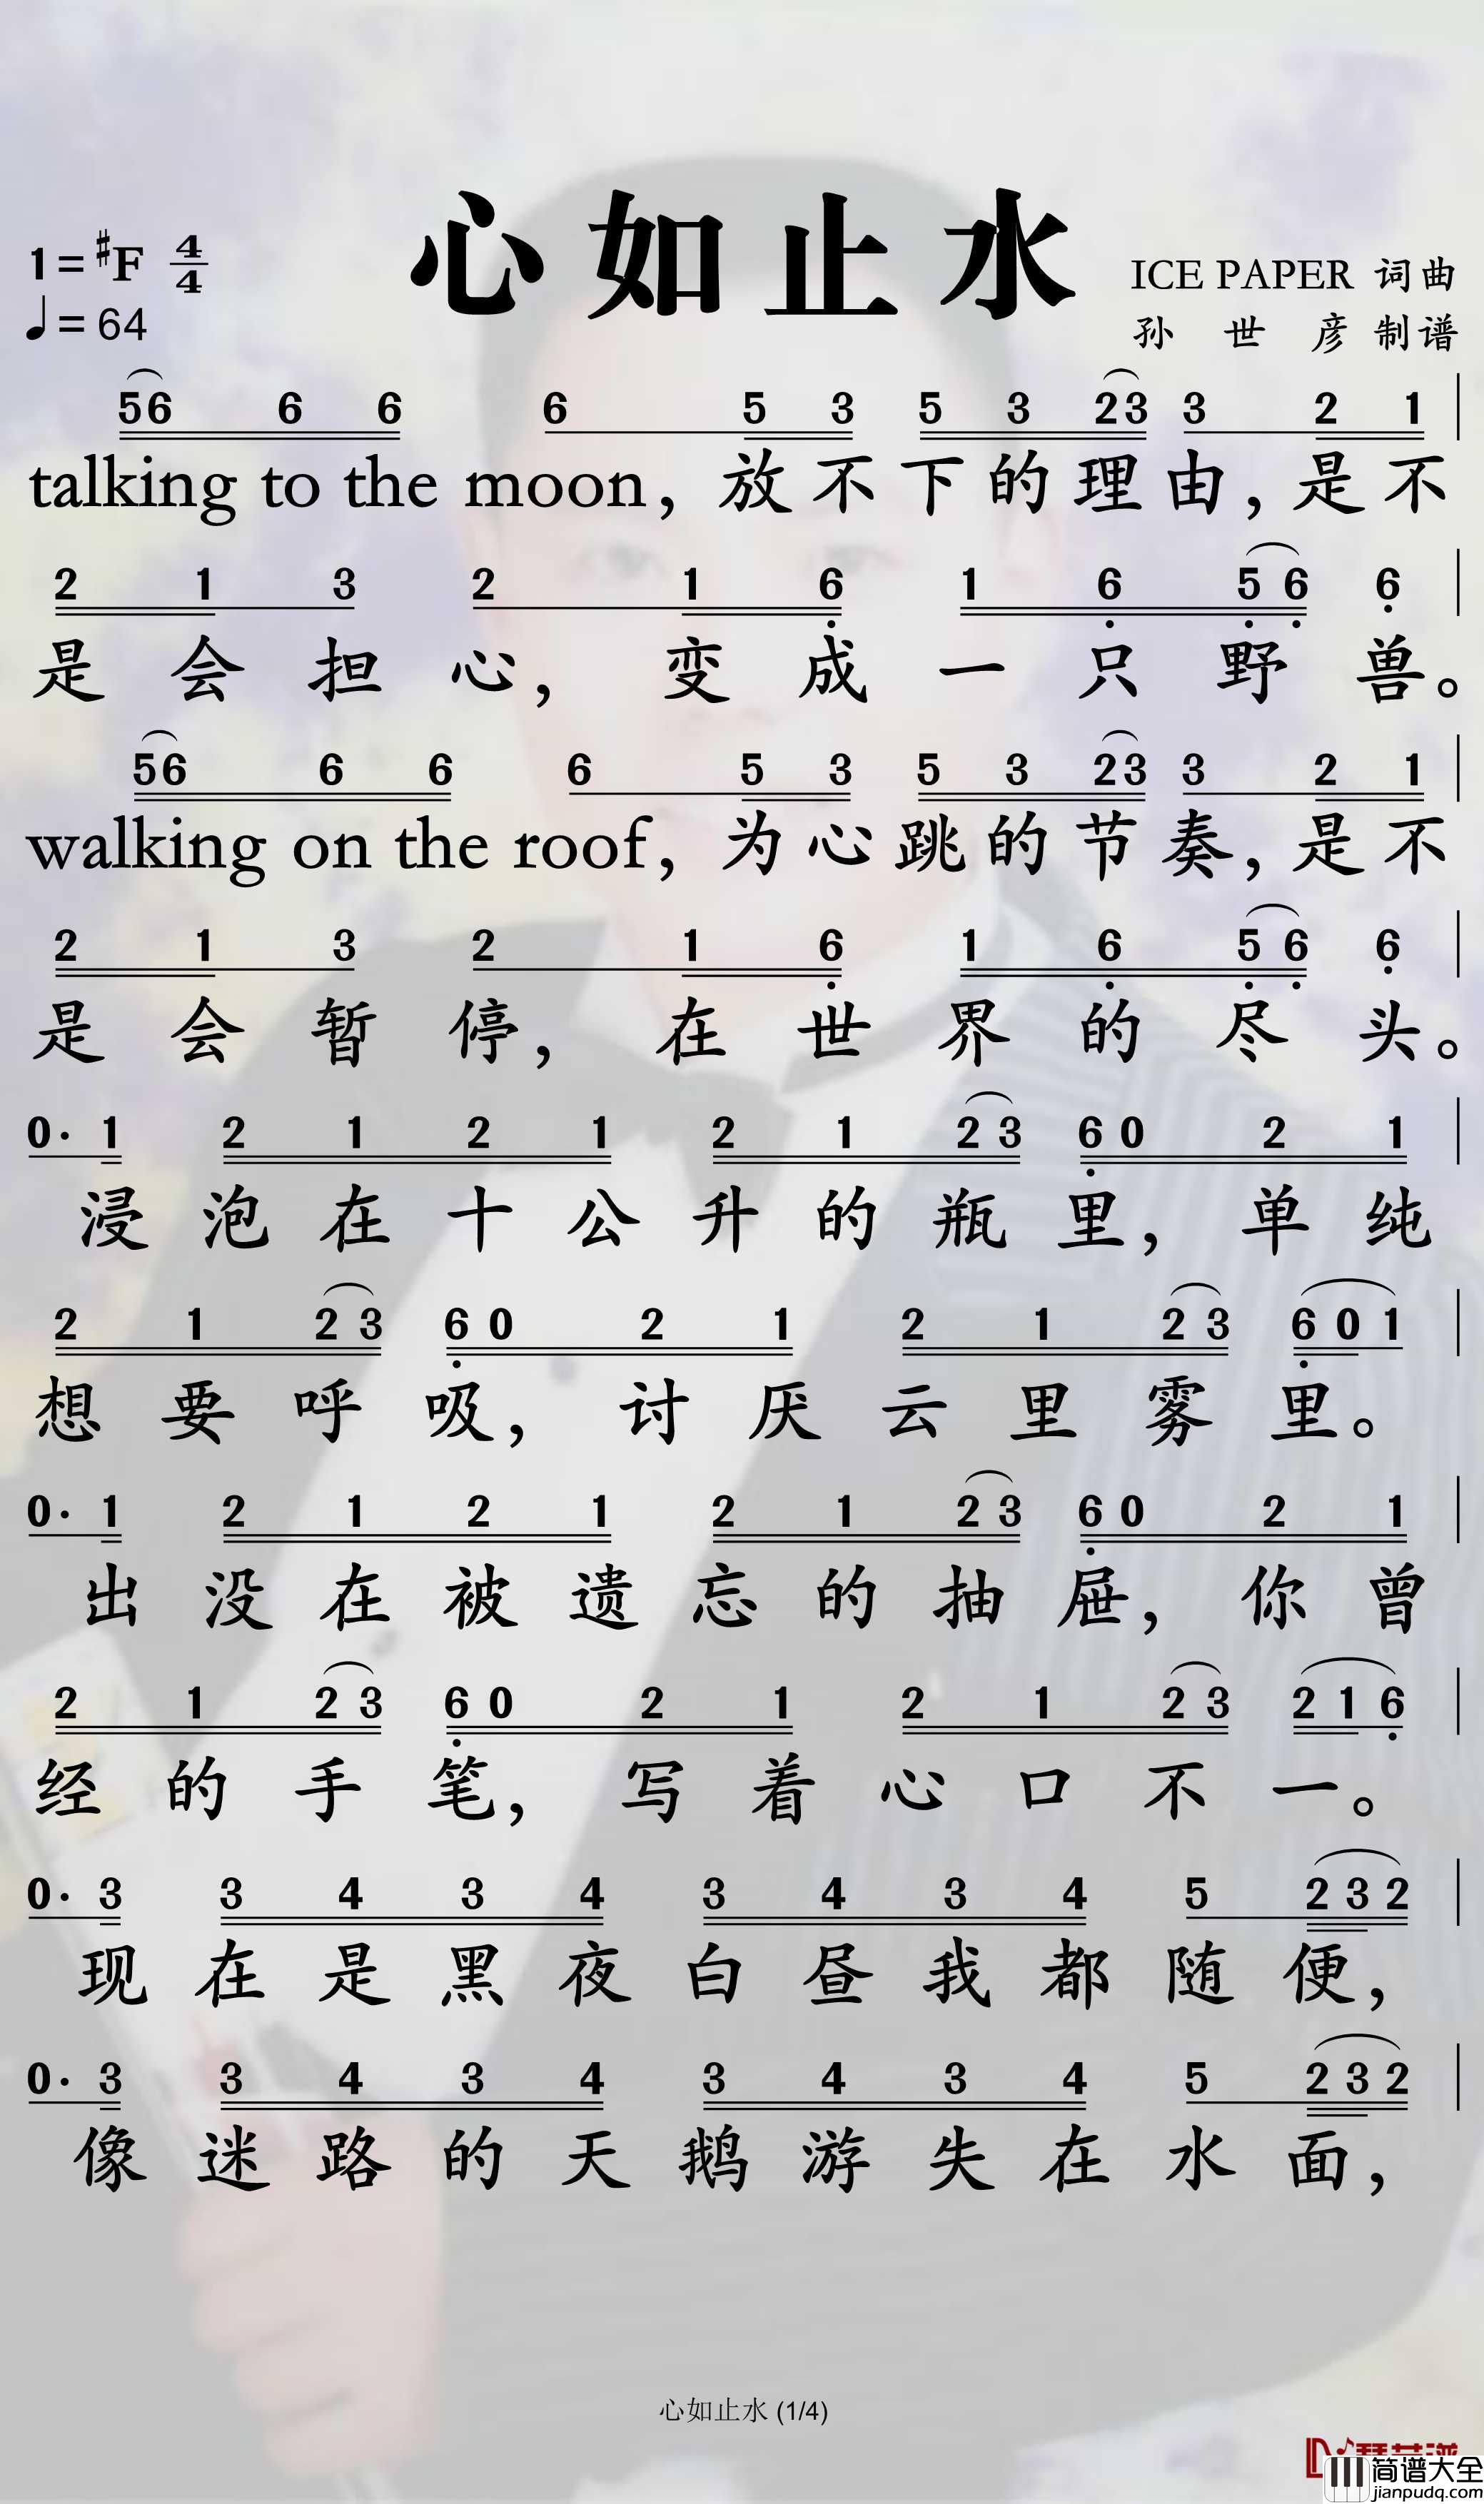 心如止水
1=♯F 4/4
♩=64
ICE PAPER 词曲
孙世彦制谱
56 6 6 6 5 3 5 3 23 3 2 1
talking to the moon，放不下的理由，是不
2 1 3 2 1 6̣ 1 6̣ 5̣ 6̣ 6̣
是会担心，变成一只野兽。
56 6 6 6 5 3 5 3 23 3 2 1
walking on the roof，为心跳的节奏，是不
2 1 3 2 1 6̣ 1 6̣ 5̣ 6̣ 6̣
是会暂停，在世界的尽头。
0· 1 2 1 2 1 2 1 2 3 6̣ 0 2 1
浸泡在十公升的瓶里，单纯
2 1 2 3 6̣ 0 2 1 2 1 2 3 6̣ 0 1
想要呼吸，讨厌云里雾里。
0· 1 2 1 2 1 2 1 2 3 6̣ 0 2 1
出没在被遗忘的抽屉，你曾
2 1 2 3 6̣ 0 2 1 2 1 2 3 2 1 6̣
经的手笔，写着心口不一。
0· 3 3 4 3 4 3 4 3 4 5 2 3 2
现在是黑夜白昼我都随便，
0· 3 3 4 3 4 3 4 3 4 5 2 3 2
像迷路的天鹅游失在水面，
心如止水 (1/4)
简谱大全
jianpudq.com